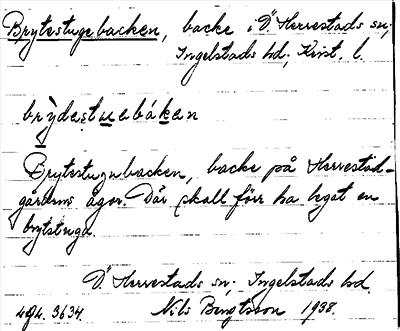 Brytestugebacken, backe i Ö. Herrestads sn,
Ingelstads hd, Krist. l.
brỳdestuebáken
Brytestugubacken, backe på Herrestad-
gårdens ägor. Där skall förr ha legat en
brytstuga.
Ö. Herrestads sn, Ingelstads hd.
Nils Bengtsson 1938.
3634.